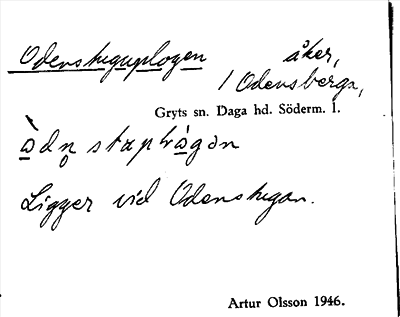 Odenstuguplogen åker,
/ Odensberga,
Gryts sn. Daga hd. Söderm. l.
Ligger vid Odenstugan.
Artur Olsson 1946.